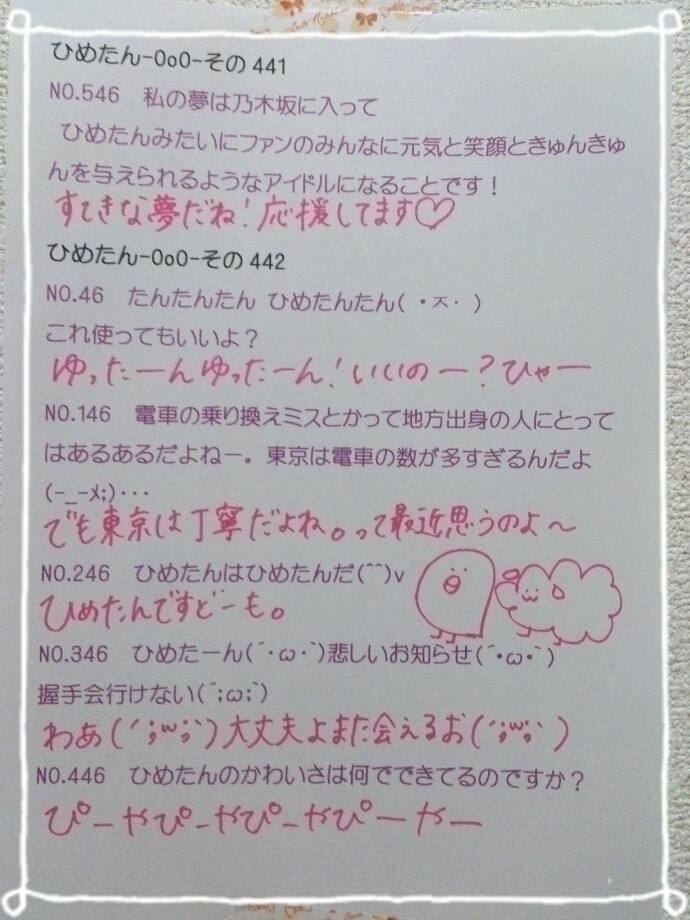 ひめたん-OoO-その441
NO.546　私の夢は乃木坂に入って
ひめたんみたいにファンのみんなに元気と笑顔ときゅんきゅ
んを与えられるようなアイドルになることです！
すてきな夢だね！応援してます♡
ひめたん-OoO-その442
NO.46　たんたんたん ひめたんたん(　・ㅈ・　)
これ使ってもいいよ？
ゆったーんゆったーん！いいのー？ひゃー
NO.146　電車の乗り換えミスとかって地方出身の人にとって
はあるあるだよねー。東京は電車の数が多すぎるんだよ
(-_-メ;)・・・
でも東京は丁寧だよね。って最近思うのよ〜
NO.246　ひめたんはひめたんだ(^^)v
ひめたんですどーも。
NO.346　ひめたーん(´・ω・`)悲しいお知らせ(´・ω・`)
握手会行けない(´;ω;`)
わあ(´;ω;`)大丈夫よまた会えるお(´;ω;`)
NO.446　ひめたんのかわいさは何でできてるのですか？
ぴーやぴーやぴーやぴーやー